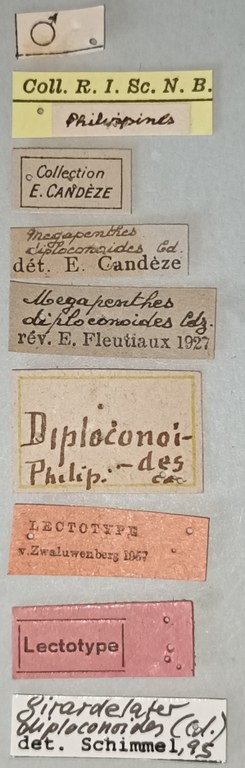 ♂
Coll. R. I. Sc. N. B.
Philippines
Collection
E. CANDÈZE
Megapenthes
diploconoides Cd.
dét. E. Candèze
Megapenthes
diploconoides Cdz.
rév. E. Fleutiaux 1927
Diploconoi-
des
Philip.
LECTOTYPE
v.Zwaluwenberg 1957
Lectotype
Girardelater
diploconoides (Cd.)
det. Schimmel, 95